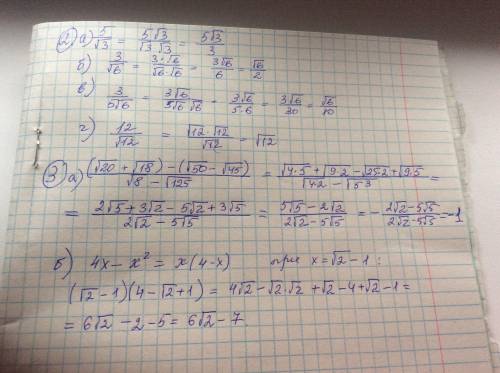 ② а) 5/√3 = 5√3/(√3 √3) = 5√3/3
б) 3/√6 = 3·√6/(√6·√6) = 3√6/6 = √6/2
в) 3/(5√6) = 3√6/(5√6 √6) = 3√6/(5·6) = 3√6/30 = √6/10
г) 12/√12 = √12·√12/√12 = √12
③ а) ((√20 + √18) − (√50 − √45))/(√8 − √125) = (√4·5 + √9·2 − √25·2 + √9·5)/(√4·2 − √5³) =
= (2√5 + 3√2 − 5√2 + 3√5)/(2√2 − 5√5) = (5√5 − 2√2)/(2√2 − 5√5) = − (2√2 − 5√5)/(2√2 − 5√5) = −1
б) 4x − x² = x(4 − x) при x = √2 − 1 :
(√2 − 1)(4 − √2 + 1) = 4√2 − √2·√2 + √2 − 4 + √2 − 1 =
= 6√2 − 2 − 5 = 6√2 − 7